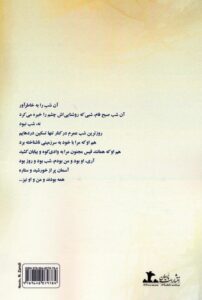 آن شب را به خاطر آور
آن شب صبح فام، شبی که روشنایی‌اش چشم را خیره می‌کرد
نه، شب نبود
روزترین شب عمرم در کنار تنها تسکین دردهایم
هم او که مرا با خود به سرزمینی ناشناخته برد
هم او که همانند قیس مجنون مرا به وادی کوه و بیابان کشید
آری، او بود و من بودم، شب بود و روز بود
آسمان پر از خورشید و ستاره
همه بودند و من و او نیز...